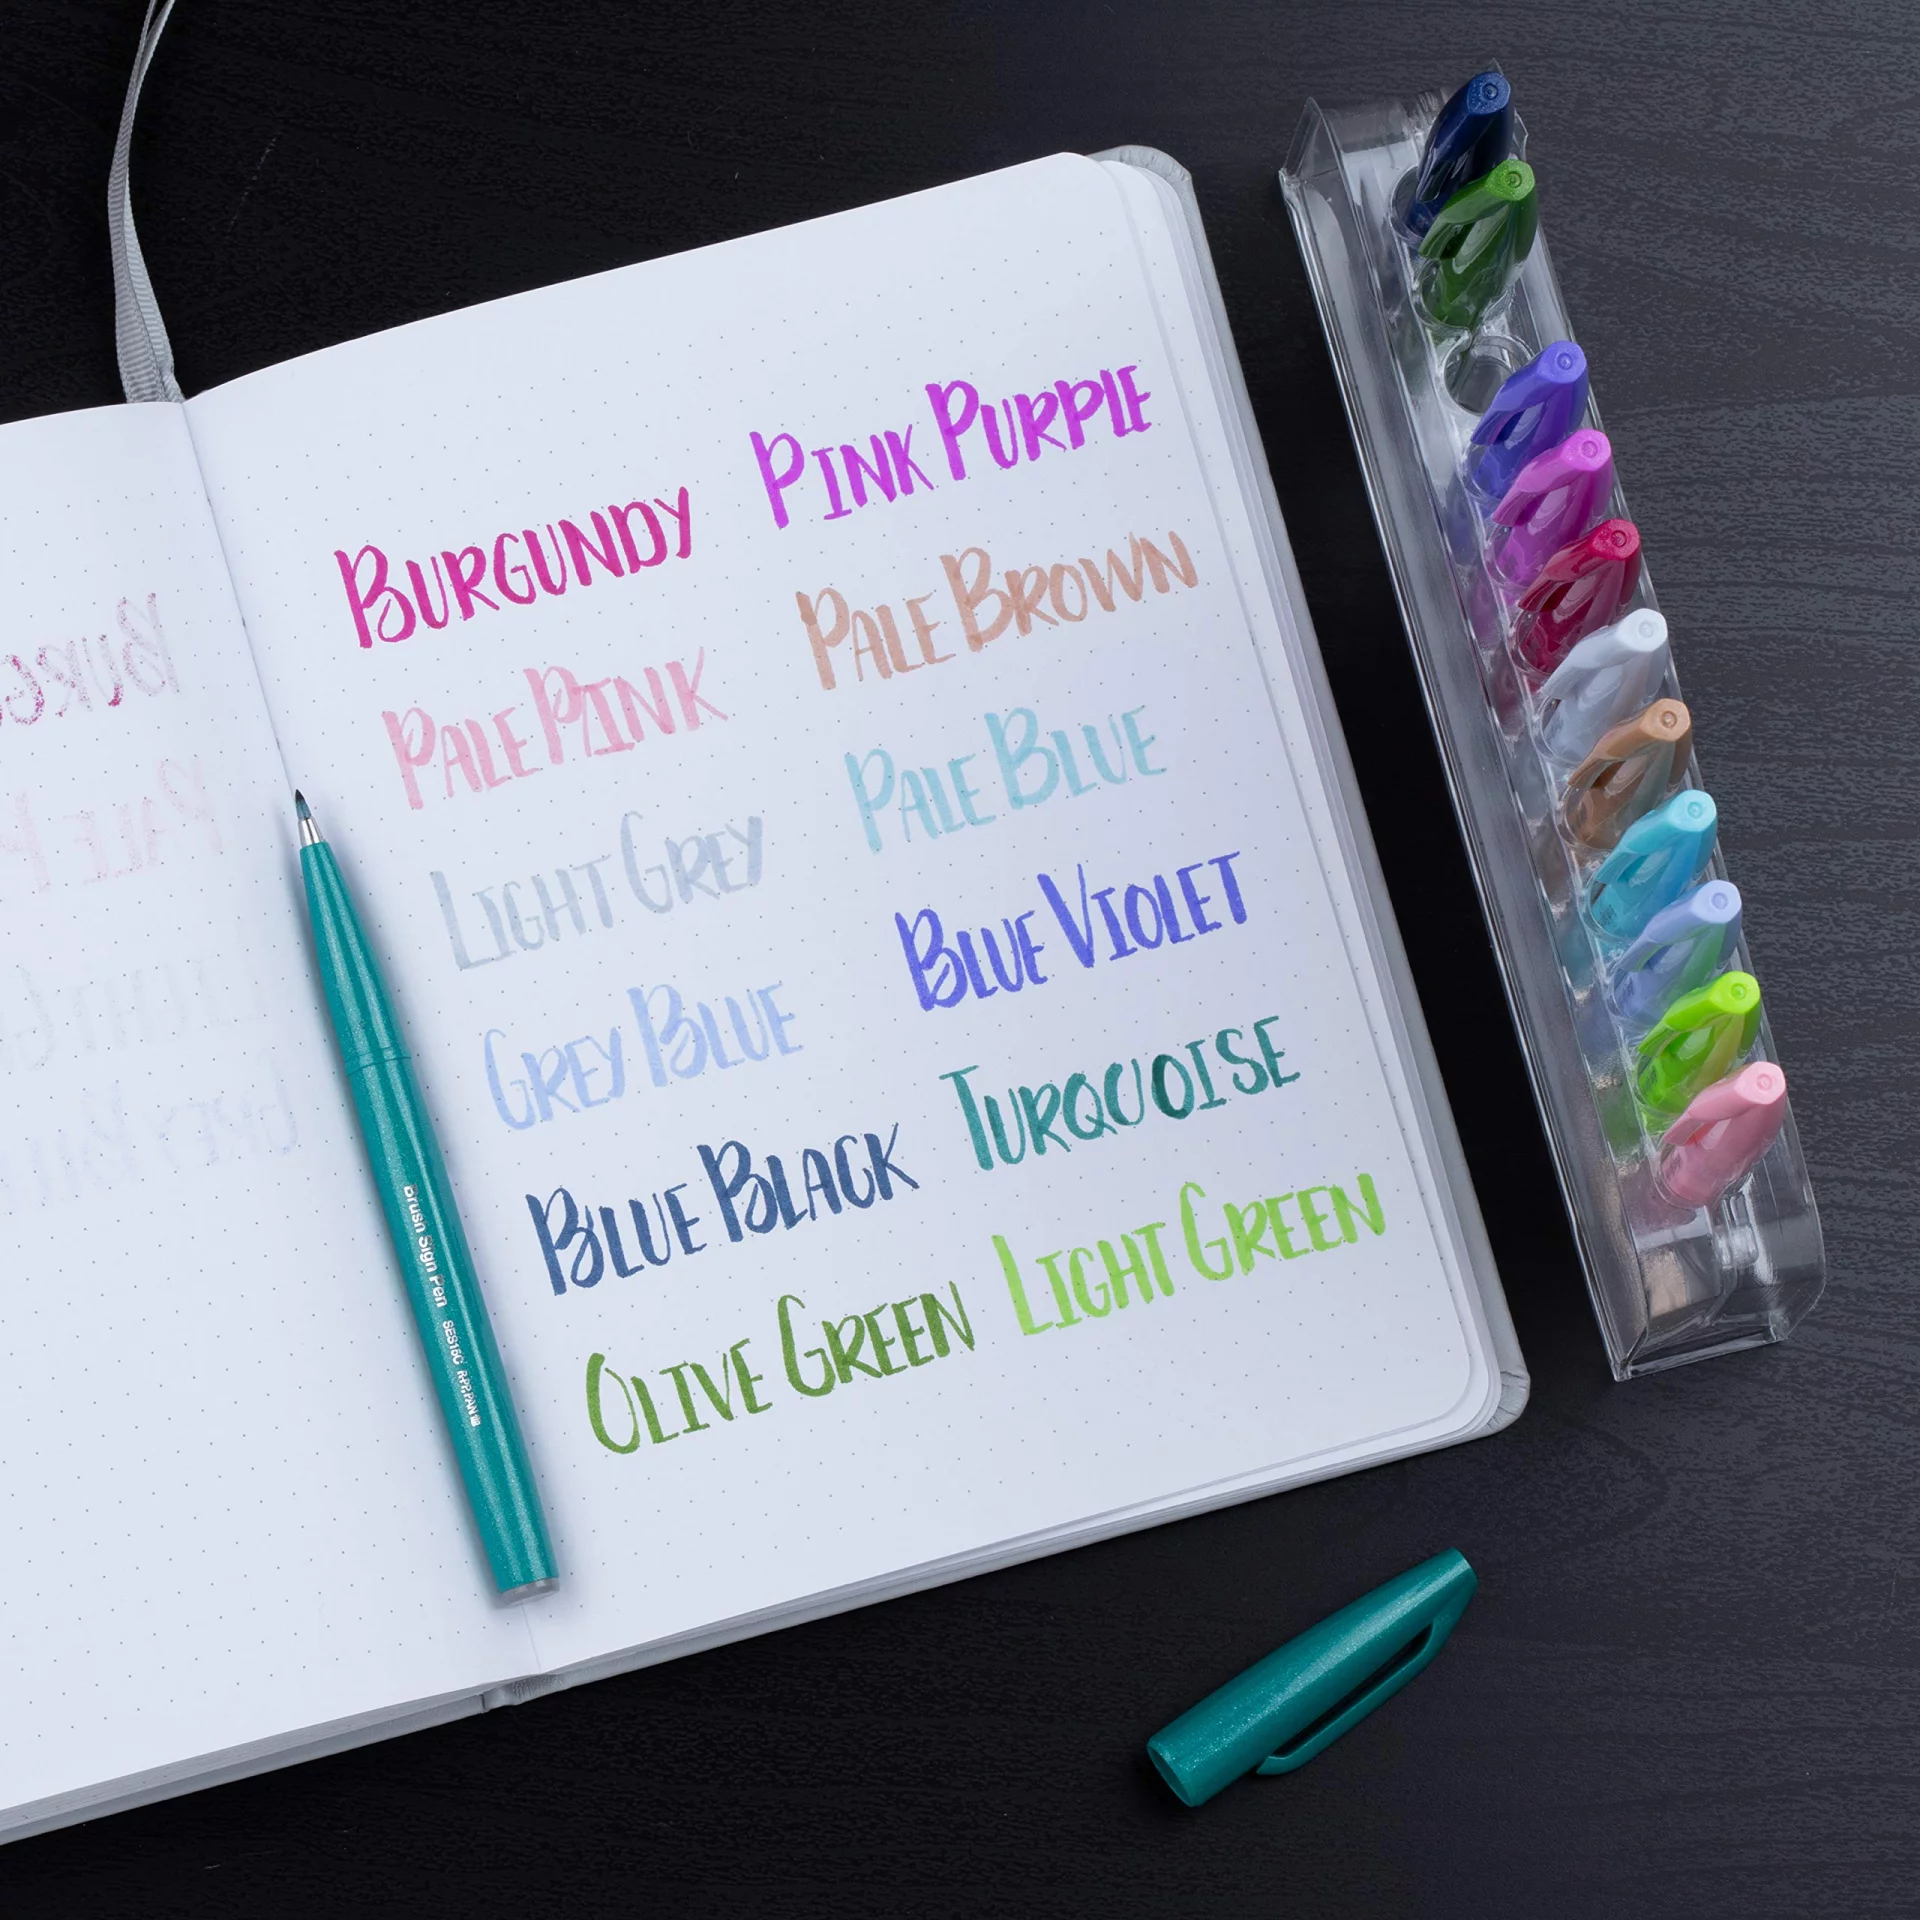 Burgundy Pink Purple
Pale Pink Pale Brown
Light Grey Pale Blue
Grey Blue Blue Violet
Blue Black Turquoise
Olive Green Light Green
Brush Sign Pen SES15C